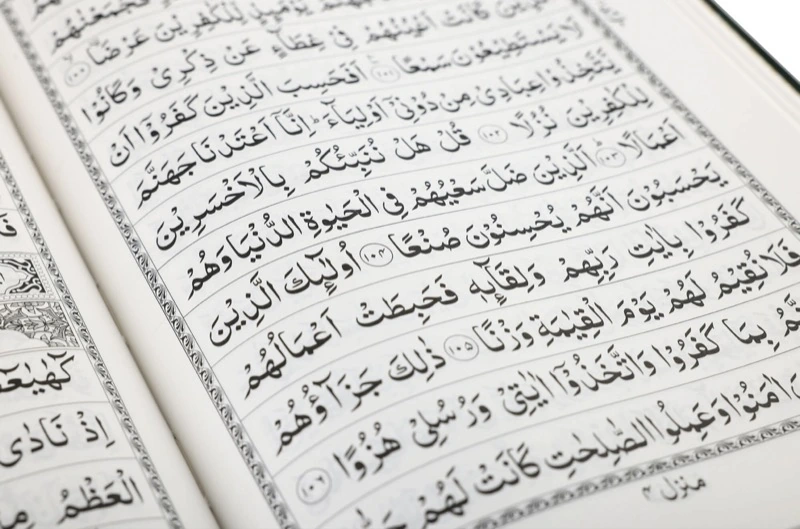 لِّلْكٰفِرِيْنَ عَرْضًا ۝١٠٠
كَانَتْ اَعْيُنُهُمْ فِيْ غِطَآءٍ عَنْ ذِكْرِيْ وَكَانُوْا
لَا يَسْتَطِيْعُوْنَ سَمْعًا ۝١٠١ اَفَحَسِبَ الَّذِيْنَ كَفَرُوْٓا اَنْ
يَّتَّخِذُوْا عِبَادِيْ مِنْ دُوْنِيْٓ اَوْلِيَآءَ ؕ اِنَّآ اَعْتَدْنَا جَهَنَّمَ
لِلْكٰفِرِيْنَ نُزُلًا ۝١٠٢ قُلْ هَلْ نُنَبِّئُكُمْ بِالْاَخْسَرِيْنَ
اَعْمَالًا ۝١٠٣ اَلَّذِيْنَ ضَلَّ سَعْيُهُمْ فِي الْحَيٰوةِ الدُّنْيَا وَهُمْ
يَحْسَبُوْنَ اَنَّهُمْ يُحْسِنُوْنَ صُنْعًا ۝١٠٤ اُولٰٓئِكَ الَّذِيْنَ
كَفَرُوْا بِاٰيٰتِ رَبِّهِمْ وَلِقَآئِهٖ فَحَبِطَتْ اَعْمَالُهُمْ
فَلَا نُقِيْمُ لَهُمْ يَوْمَ الْقِيٰمَةِ وَزْنًا ۝١٠٥ ذٰلِكَ جَزَآؤُهُمْ
بِمَا كَفَرُوْا وَاتَّخَذُوْٓا اٰيٰتِيْ وَرُسُلِيْ هُزُوًا ۝١٠٦
اٰمَنُوْا وَعَمِلُوا الصّٰلِحٰتِ كَانَتْ لَهُمْ
منزل ۴
اِذْ نَادٰى
الْعَظْمُ